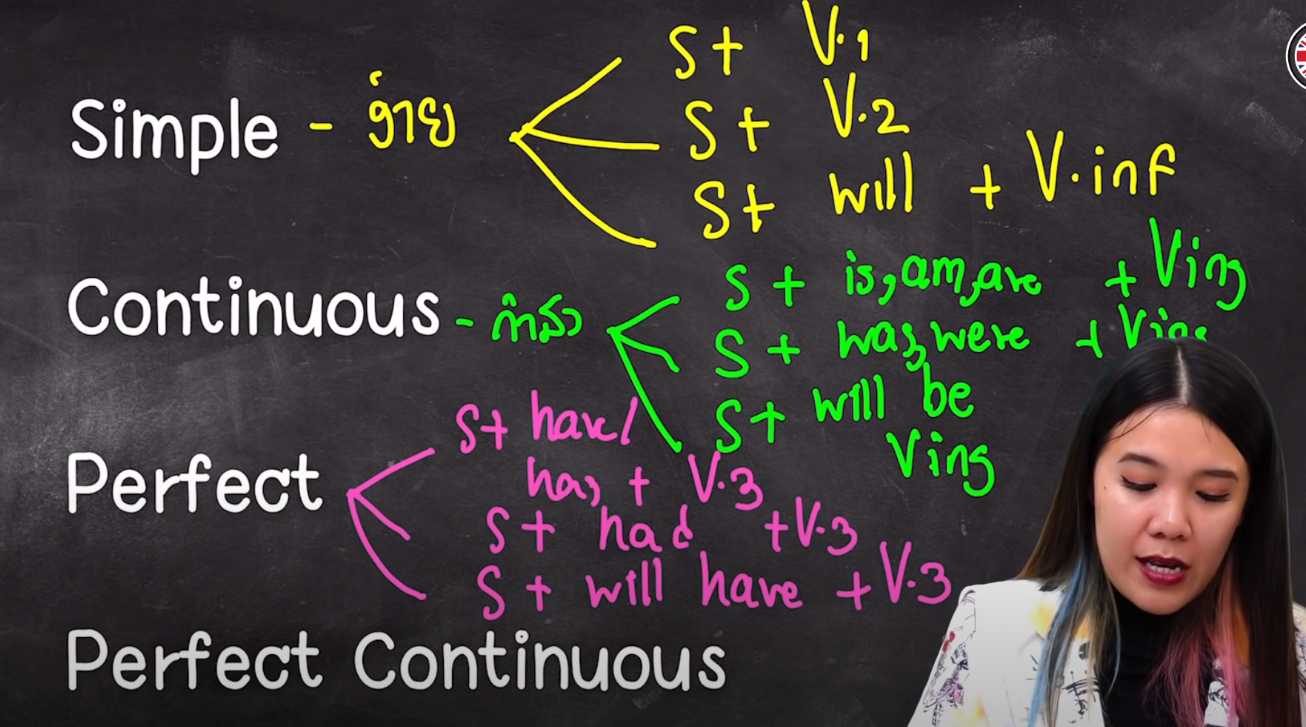 Simple - ง่าย
S + V.1
S + V.2
S + will + V.inf
Continuous - กำลัง
S + is, am, are + Ving
S + was, were + Ving
S + will be
Ving
Perfect
S + have/
has + V.3
S + had + V.3
S + will have + V.3
Perfect Continuous